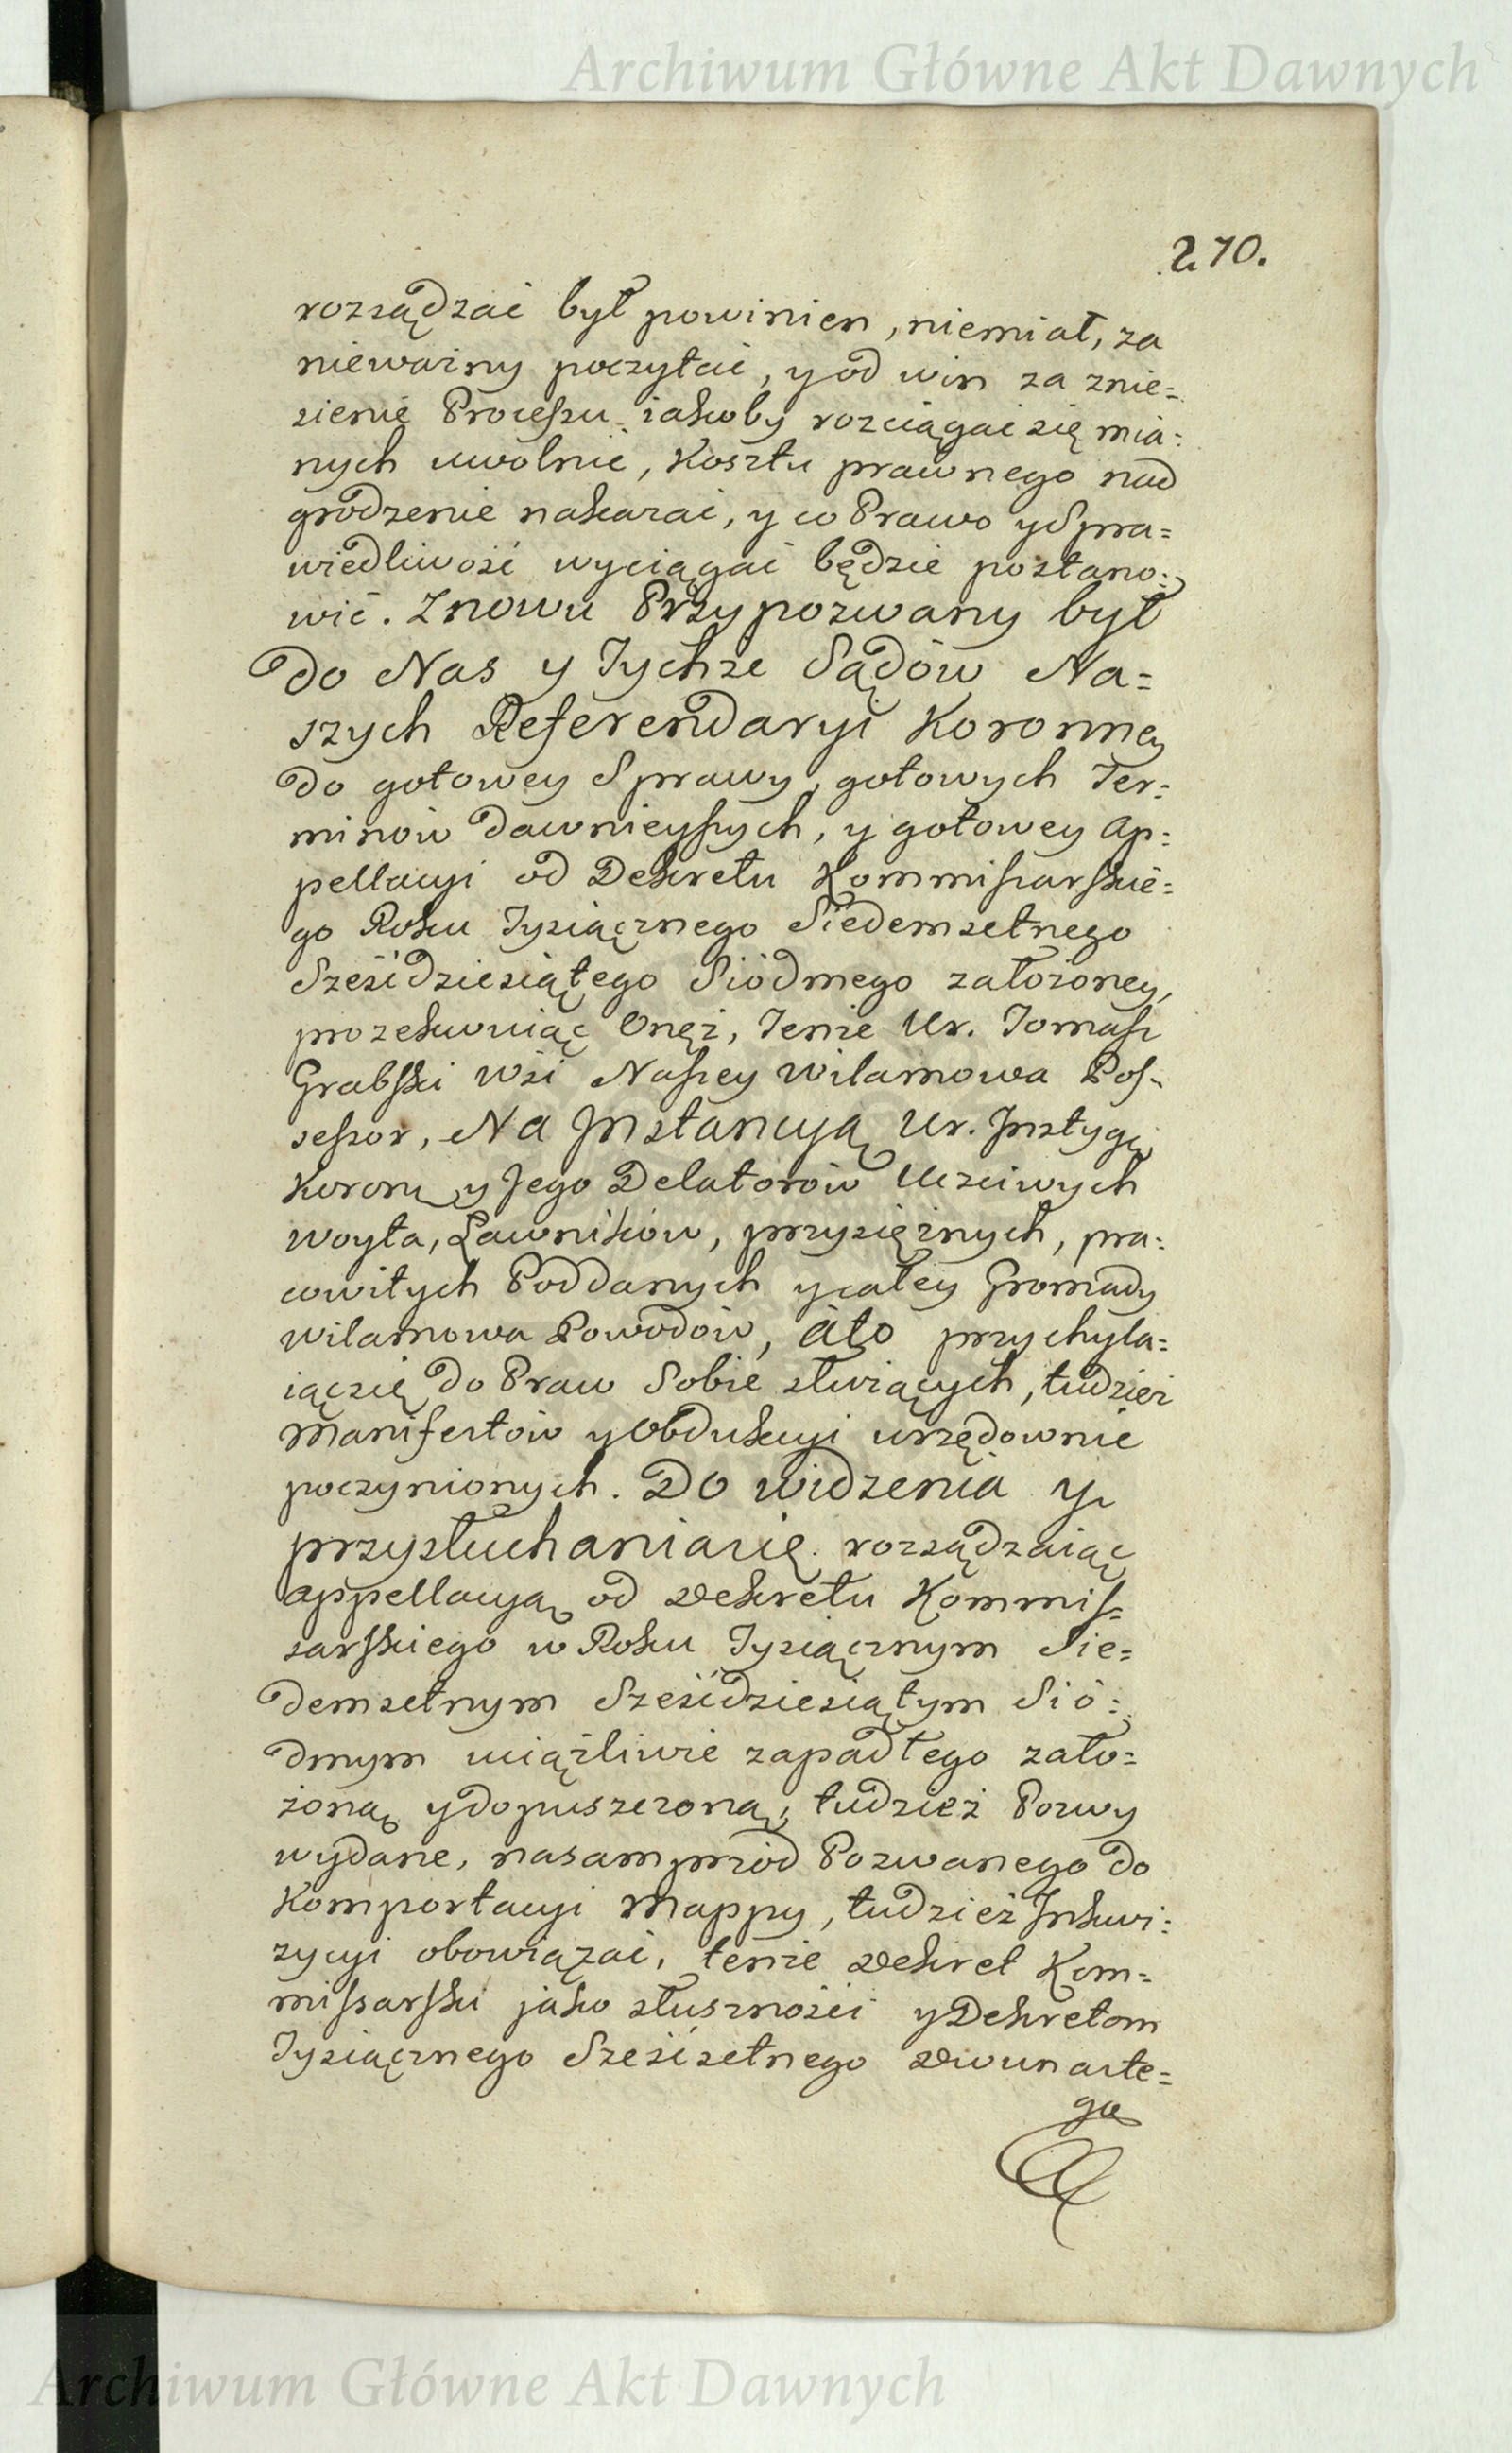 Archiwum Główne Akt Dawnych
270.
rozsądzać był powinien, niemiał, za
nieważny poczytać, y od win za znie=
sienie Processu jakoby rozciągać się mia=
nych uwolnić, Kosztu prawnego nad
grodzenie nakazać, y co Prawo y Spra=
wiedliwość wyciągać będzie postano=
wić. Znowu Przypozwany był
do Nas y Tychże Sądów Na=
szych Referendaryi Koronney
do gotowey Sprawy, gotowych Ter=
minów dawnieyszych, y gotowey Ap=
pellacyi od Dekretu Kommissarskie=
go Roku Tysiącznego Siedemsetnego
Sześćdziesiątego Siódmego założoney,
prozekwuiąc Onęż, Tenże Ur. Tomasz
Grabski Wsi Naszey Wilamowa Pos=
sessor, Na Jnstancyą Ur. Jnstyg:
Koron: y Jego Delatorów Uczciwych
Woyta, Ławników, przysiężnych, pra=
cowitych Poddanych y całey Gromady
Wilamowa Powodów, Ato przychyla=
iąc się do Praw Sobie służących, tudzież
Manifestów y Obdukcyi urzędownie
poczynionych. Do widzenia y
przysłuchania się rozsądzaiąc
Appellacyą od Dekretu Kommis=
sarskiego w Roku Tysiącznym Sie=
demsetnym Sześćdziesiątym Sió=
dmym uciążliwie zapadłego zało=
żoną y dopuszczoną, tudzież Pozwy
wydane, nasamprzód Pozwanego do
Komportacyi Mappy, tudzież Jnkwi=
zycyi obowiązać, tenże Dekret Kom=
missarski jako słuszności y Dekretom
Tysiącznego Sześćsetnego Dwunaste=
go
Archiwum Główne Akt Dawnych